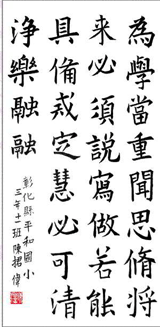 為學當重聞思脩將
来必須說寫做若能
具俻戒定慧必可清
淨樂融融
彰化縣平和國小
三年十一班陳珺偉